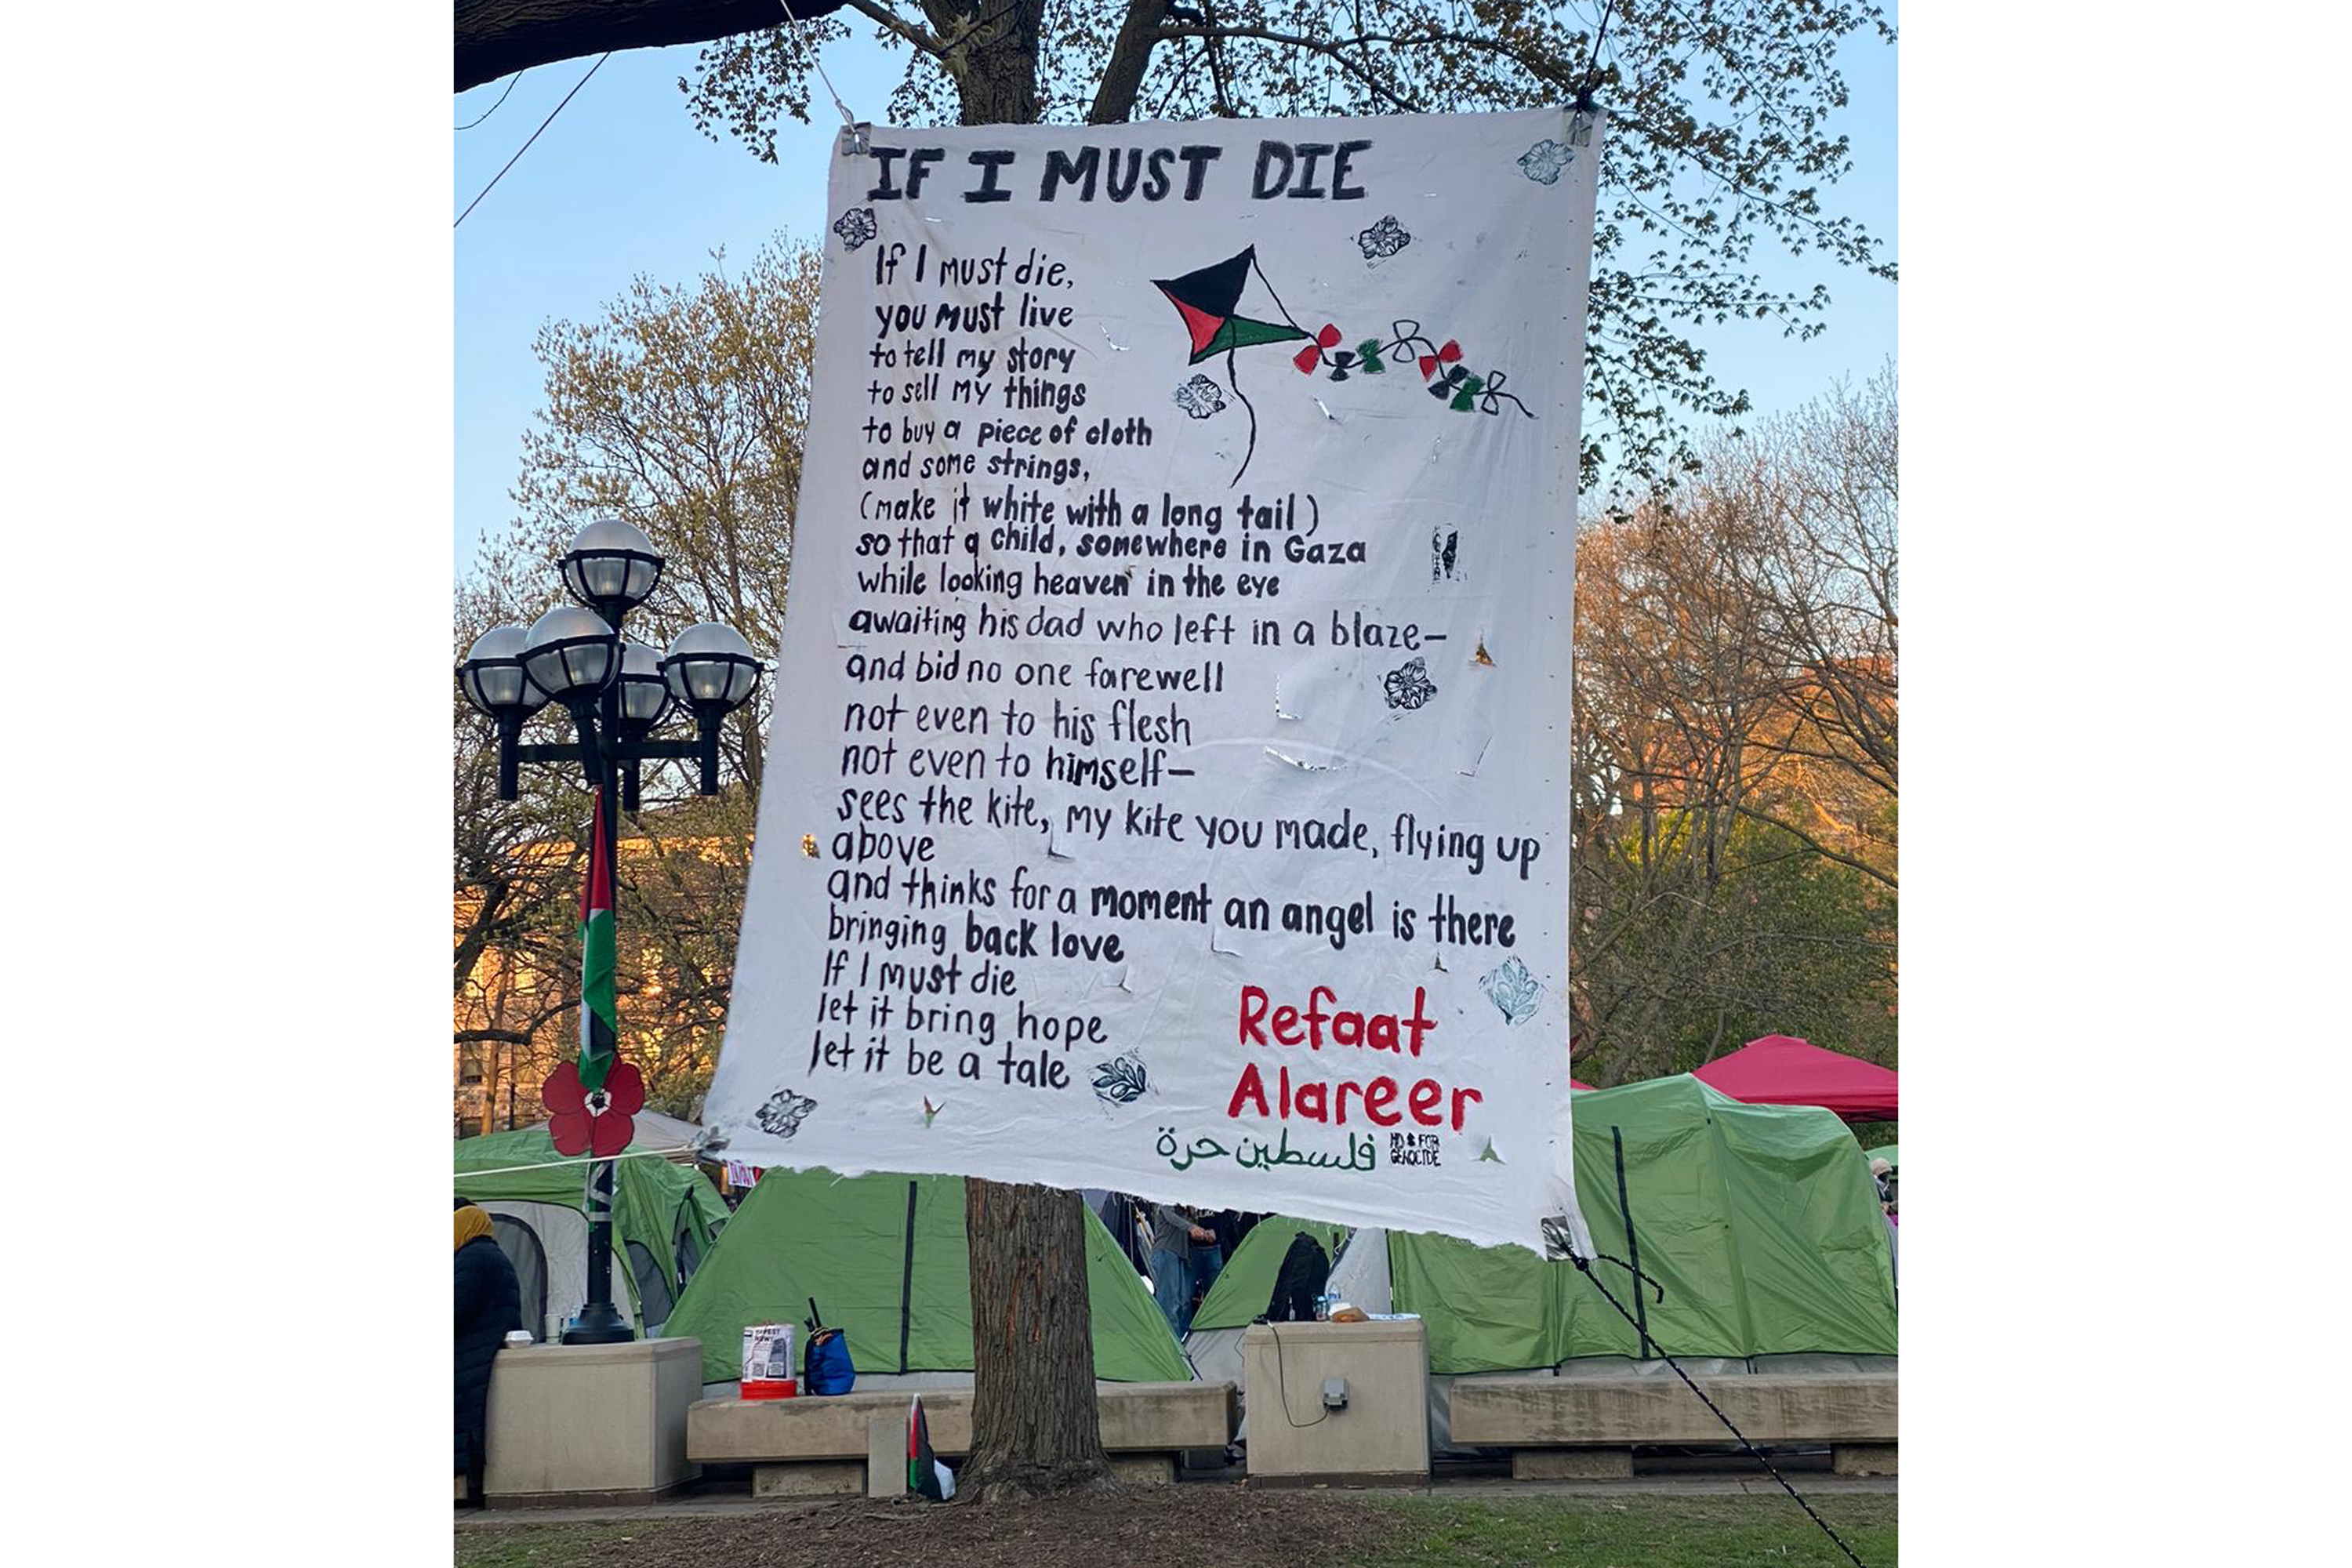 IF I MUST DIE
If I must die,
you must live
to tell my story
to sell my things
to buy a piece of cloth
and some strings,
(make it white with a long tail)
so that a child, somewhere in Gaza
while looking heaven in the eye
awaiting his dad who left in a blaze—
and bid no one farewell
not even to his flesh
not even to himself—
sees the kite, my kite you made, flying up
above
and thinks for a moment an angel is there
bringing back love
If I must die
let it bring hope
let it be a tale
Refaat
Alareer
فلسطين حرة
NO $ FOR
GENOCIDE